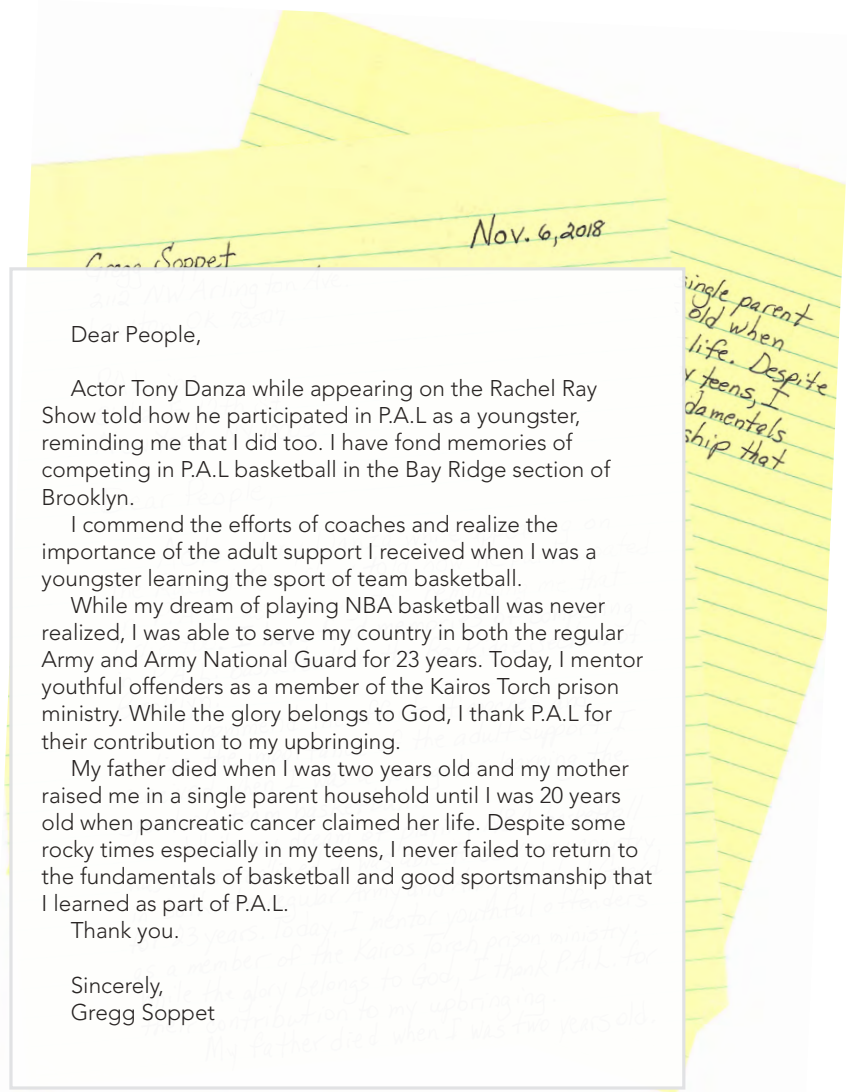 Nov. 6, 2018
Gregg Soppet
single parent
old when
life. Despite
teens, I
damentals
ship that
Dear People,
Actor Tony Danza while appearing on the Rachel Ray
Show told how he participated in P.A.L as a youngster,
reminding me that I did too. I have fond memories of
competing in P.A.L basketball in the Bay Ridge section of
Brooklyn.
I commend the efforts of coaches and realize the
importance of the adult support I received when I was a
youngster learning the sport of team basketball.
While my dream of playing NBA basketball was never
realized, I was able to serve my country in both the regular
Army and Army National Guard for 23 years. Today, I mentor
youthful offenders as a member of the Kairos Torch prison
ministry. While the glory belongs to God, I thank P.A.L for
their contribution to my upbringing.
My father died when I was two years old and my mother
raised me in a single parent household until I was 20 years
old when pancreatic cancer claimed her life. Despite some
rocky times especially in my teens, I never failed to return to
the fundamentals of basketball and good sportsmanship that
I learned as part of P.A.L.
Thank you.
Sincerely,
Gregg Soppet